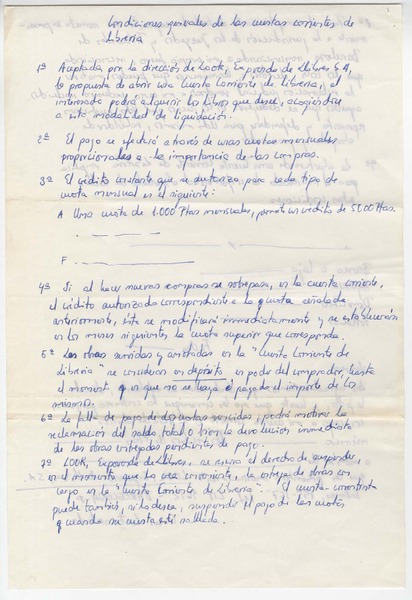 Condiciones generales de las cuentas corrientes de
Librería
1ª Aceptada por la dirección de LOOR, Exposvda de Libros S.A,
la propuesta de abrir una cuenta Corriente de Librería, el
interesado podrá adquirir los libros que desee, acogiéndose
a esta modalidad de liquidación.
2ª El pago se efectúa a través de unas cuotas mensuales
proporcionales a la importancia de las compras.
3ª El crédito constante que se autoriza para cada tipo de
cuota mensual es el siguiente:
A Una cuota de 1.000 Ptas mensuales, permite un crédito de 5000 Ptas.
F
4ª Si al hacer nuevas compras se sobrepasa, en la cuenta corriente,
el crédito autorizado correspondiente a la cuota señalada
anteriormente, ésta se modificará inmediatamente y se establecerá
en los meses siguientes la cuota superior que corresponda.
5ª Las obras servidas y anotadas en la "Cuenta Corriente de
Librería" se consideran en depósito en poder del comprador, hasta
el momento en que no se haya el pago del importe de los
mismos.
6ª La falta de pago de dos cuotas vencidas, podrá motivar la
reclamación del saldo total o bien la devolución inmediata
de las obras entregadas pendientes de pago.
7ª LOOR, Exposvda de Libros, se reserva el derecho de suspender,
en el momento que lo crea conveniente, la entrega de obras con
cargo en la "Cuenta Corriente de Librería". El cuenta-correntista
puede también, si lo desea, suspender el pago de las cuotas
cuando su cuenta esté saldada.